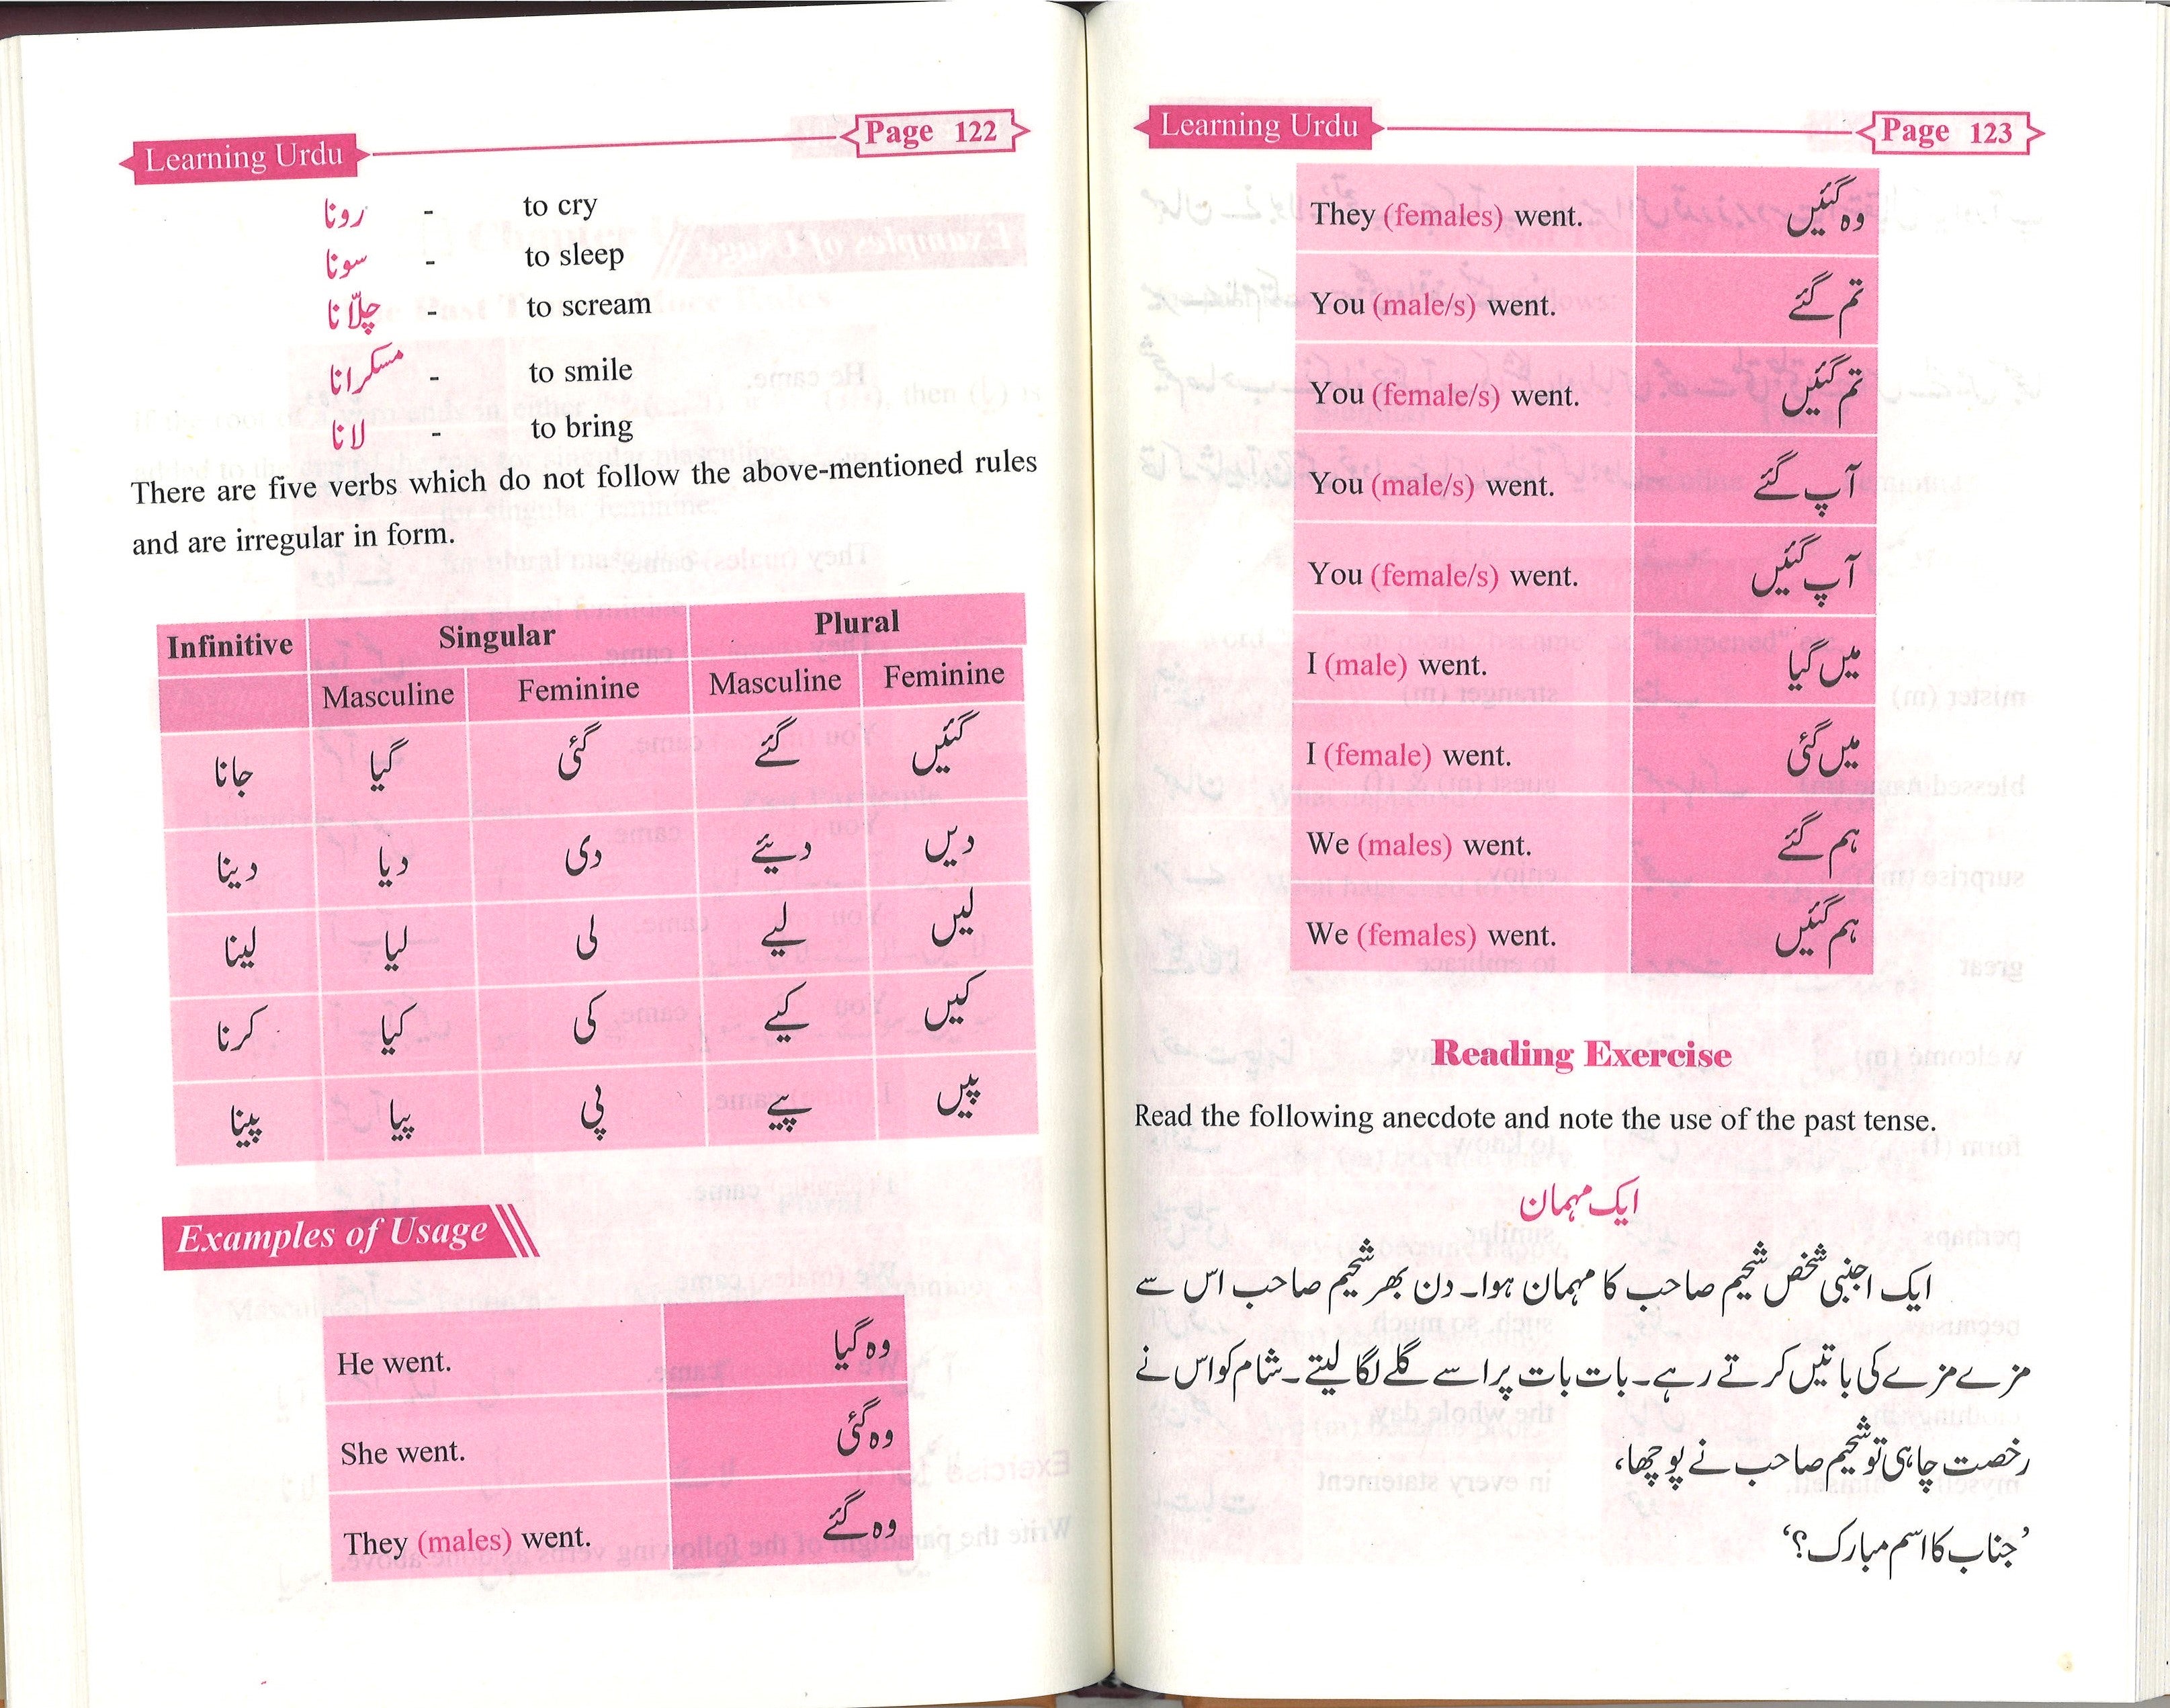 Learning Urdu
Page 122
رونا - to cry
سونا - to sleep
چلّانا - to scream
مسکرانا - to smile
لانا - to bring
There are five verbs which do not follow the above-mentioned rules
and are irregular in form.
Infinitive Singular Plural
Masculine Feminine Masculine Feminine
جانا گیا گئی گئے گئیں
دینا دیا دی دیئے دیں
لینا لیا لی لیے لیں
کرنا کیا کی کیے کیں
پینا پیا پی پیے پیں
Examples of Usage
He went. وہ گیا
She went. وہ گئی
They (males) went. وہ گئے
Learning Urdu
Page 123
They (females) went. وہ گئیں
You (male/s) went. تم گئے
You (female/s) went. تم گئیں
You (male/s) went. آپ گئے
You (female/s) went. آپ گئیں
I (male) went. میں گیا
I (female) went. میں گئی
We (males) went. ہم گئے
We (females) went. ہم گئیں
Reading Exercise
Read the following anecdote and note the use of the past tense.
ایک مہمان
ایک اجنبی شخص شحیم صاحب کا مہمان ہوا۔ دن بھر شحیم صاحب اس سے
مزے مزے کی باتیں کرتے رہے۔ بات بات پر اسے گلے لگا لیتے۔ شام کو اس نے
رخصت چاہی تو شحیم صاحب نے پوچھا،
’جناب کا اسم مبارک؟‘